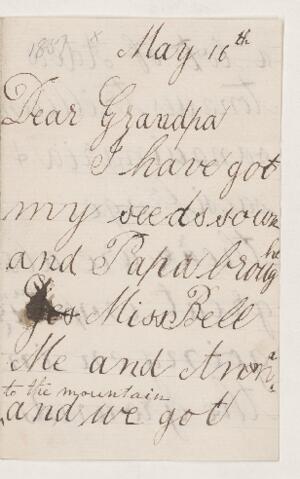 May 16th
Dear Grandpa
I have got
my seeds sown
and Papa brough
Miss Bell
Me and Anna
to the mountain
and we got